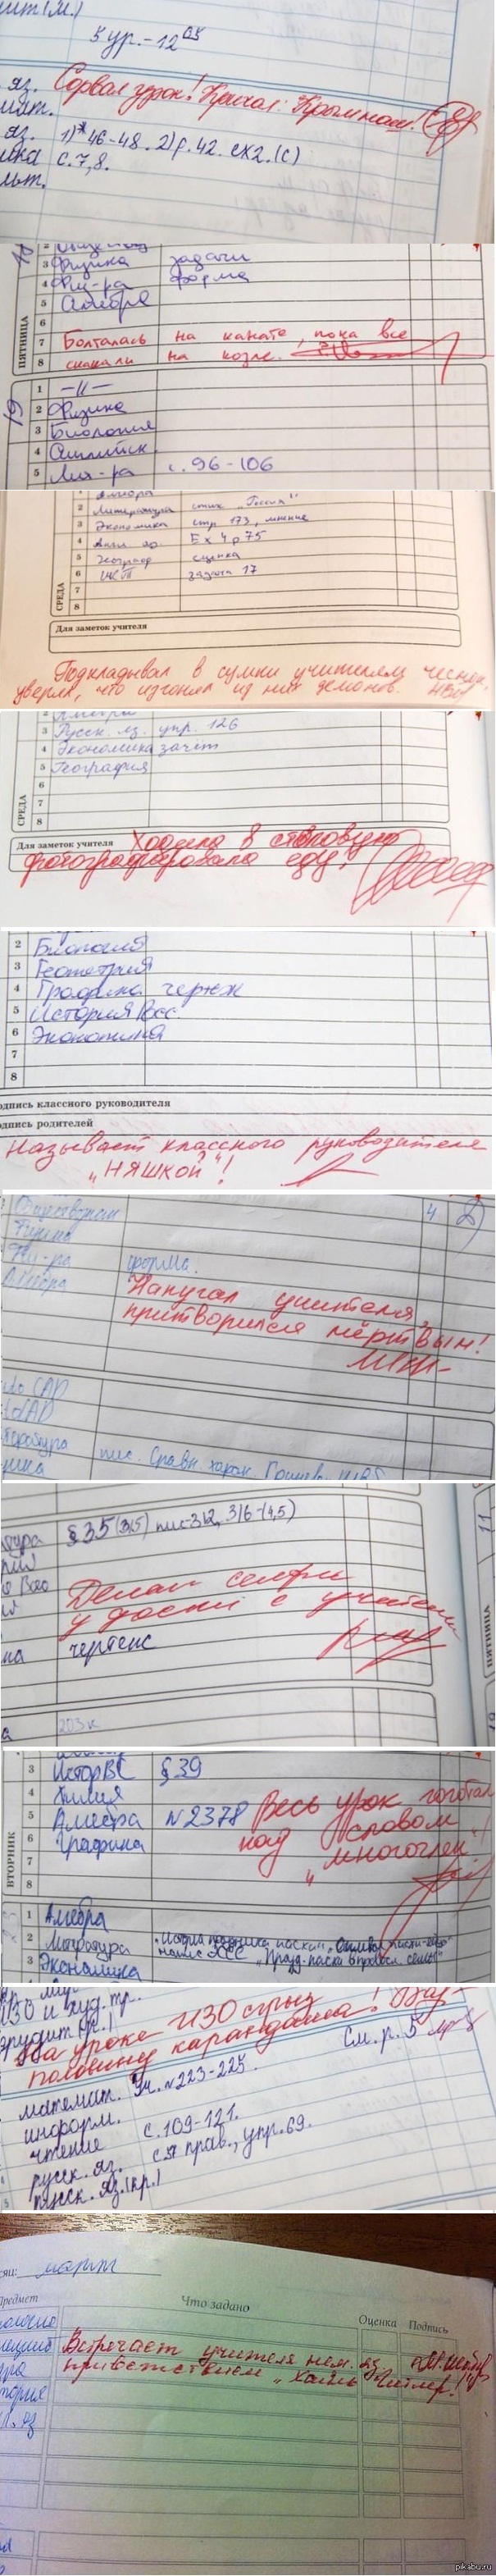 5 ур. - 12 05
яз. Сорвал урок! Кричал: Крым наш.
яз. 1) * 46-48. 2) р. 42. ех2. (с)
с. 7,8.
3 Физика задачи
4 Физ-ра форма
5 Алгебра
6
7 Болталась на канате, пока все
8 скакали на козле.
ПЯТНИЦА
19
1 —//—
2 Физика
3 Биология
4 Английск.
5 Лит-ра с. 96-106
1 Алгебра
2 Литература стих „Россия"
3 Экономика стр 173, мнение
4 Англ яз. Ex 4 p 75
5 Географ сценка
6 ИКТ задача 17
7
8
СРЕДА
Для заметок учителя
Подкладывал в сумки учителям чеснок,
уверял, что изгонял из них демонов.
3 Русск. яз. упр. 126
4 Экономика зачёт
5 География
6
7
8
СРЕДА
Для заметок учителя Ходила в столовую
фотографировала еду!
2 Биология
3 Геометрия
4 Графика чертеж
5 История Всс
6 Экономика
7
8
одпись классного руководителя
одпись родителей
Называет классного руководителя
„НЯШКОЙ"!
Обществознан 4 2
Физ-ра форма.
Алгебра Напугал учителя,
притворился мёртвым!
§35 (3,5) пис-312, 316-(4,5)
Делал селфи
у доски с учителем
чертеж
11
ПЯТНИЦА
203к
3 ИсторВС §39
4 Химия
5 Алгебра №2378 Весь урок гоготал
6 Графика над словом
7 „многочлен"!
8
ВТОРНИК
1 Алгебра
2 Литература
3 Экономика
ИЗО и худ. тр.
На уроке ИЗО сгрыз
половину карандаша!
См. р. 5
математ. Уч. №223-225.
информ.
чтение с. 109-121.
русск. яз. с.я прав., упр. 69.
русск. яз. (кр.)
сяц: март
Предмет Что задано Оценка Подпись
Встречает учителя нем. яз.
приветствием „хайль Гитлер!"
pikabu.ru